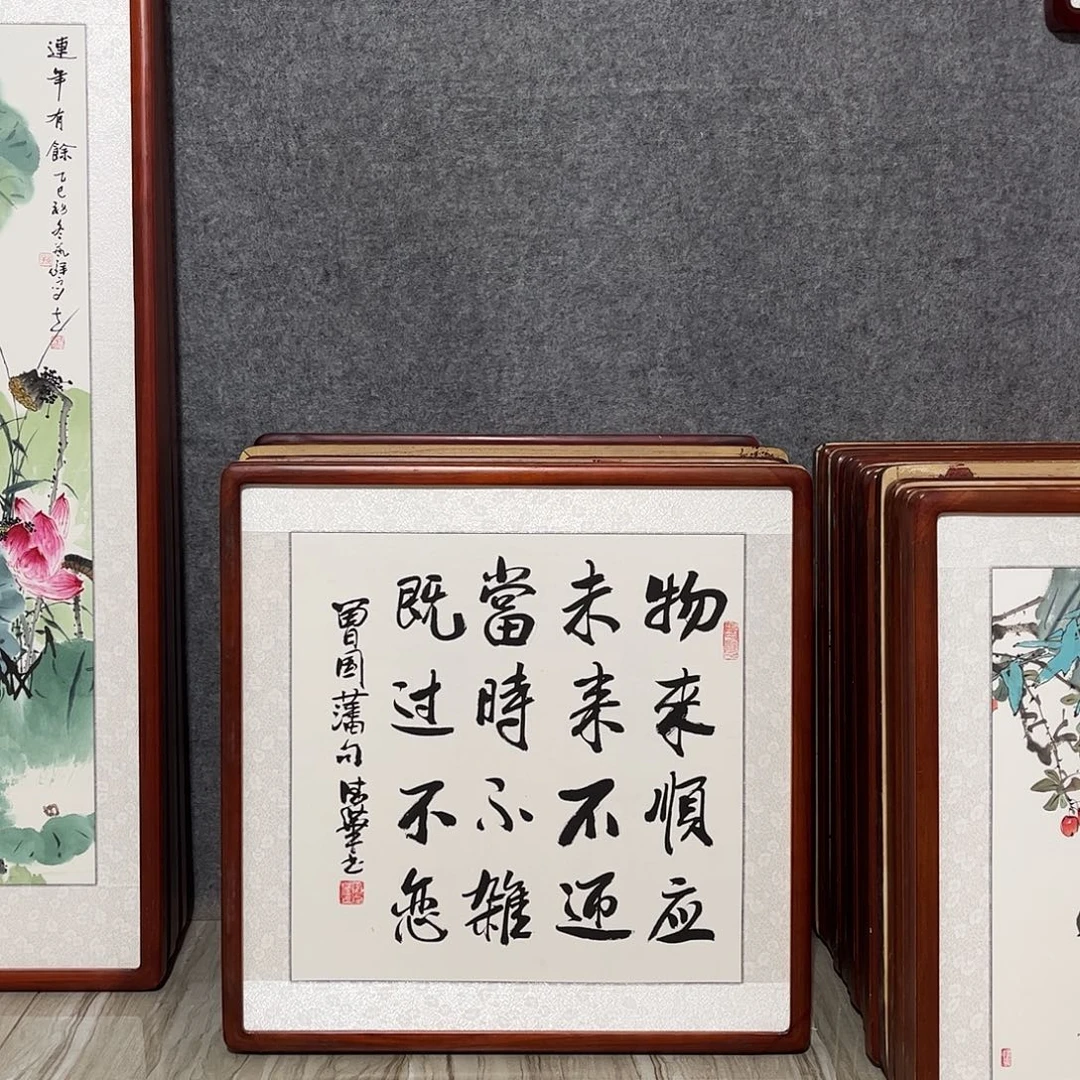 連年有餘乙巳初冬
物來順应
未来不迎
當時不雜
既过不恋
曾国藩句